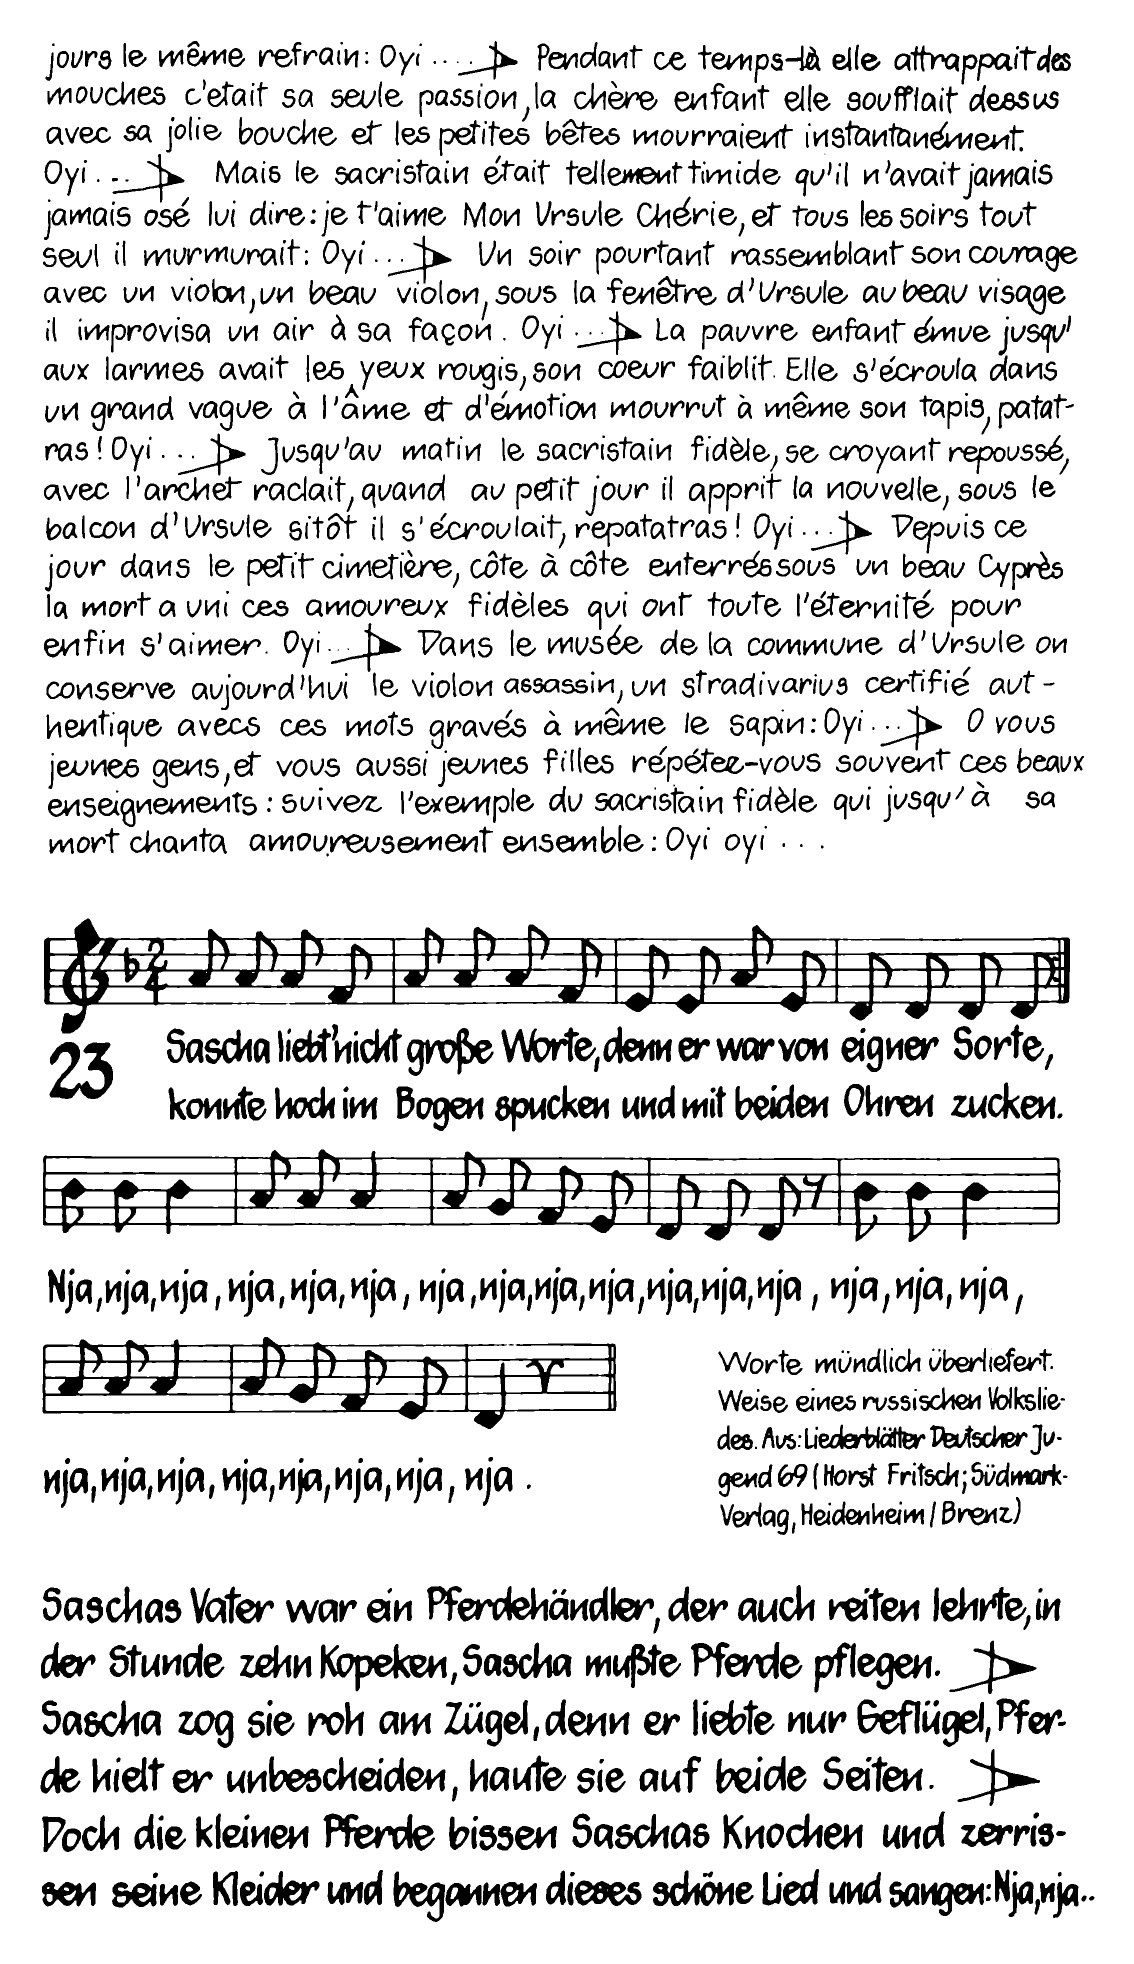 jours le même refrain: Oyi ....
Pendant ce temps-là elle attrappait des
mouches c'etait sa seule passion, la chère enfant elle soufflait dessus
avec sa jolie bouche et les petites bêtes mourraient instantanément.
Oyi . . . Mais le sacristain était tellement timide qu'il n'avait jamais
jamais osé lui dire: je t'aime Mon Ursule Chérie, et tous les soirs tout
seul il murmurait: Oyi ... Un soir pourtant rassemblant son courage
avec un violon, un beau violon, sous la fenêtre d'Ursule au beau visage
il improvisa un air à sa façon. Oyi ... La pauvre enfant émue jusqu'
aux larmes avait les yeux rougis, son coeur faiblit. Elle s'écroula dans
un grand vague à l'âme et d'émotion mourrut à même son tapis, patat-
ras! Oyi ... Jusqu'au matin le sacristain fidèle, se croyant repoussé,
avec l'archet raclait, quand au petit jour il apprit la nouvelle, sous le
balcon d'Ursule sitôt il s'écroulait, repatatras! Oyi ... Depuis ce
jour dans le petit cimetière, côte à côte enterrés sous un beau Cyprès
la mort a uni ces amoureux fidèles qui ont toute l'éternité pour
enfin s'aimer. Oyi ... Dans le musée de la commune d'Ursule on
conserve aujourd'hui le violon assassin, un stradivarius certifié aut-
hentique avecs ces mots gravés à même le sapin: Oyi ... O vous
jeunes gens, et vous aussi jeunes filles répétez-vous souvent ces beaux
enseignements: suivez l'exemple du sacristain fidèle qui jusqu'à sa
mort chanta amoureusement ensemble: Oyi oyi . . .
2
4
23
Sascha liebt' nicht große Worte, denn er war von eigner Sorte,
konnte hoch im Bogen spucken und mit beiden Ohren zucken.
Nja, nja, nja, nja, nja, nja, nja, nja, nja, nja, nja, nja, nja, nja, nja, nja,
nja, nja, nja, nja, nja, nja, nja, nja.
Worte mündlich überliefert.
Weise eines russischen Volkslie-
des. Aus: Liederblätter Deutscher Ju-
gend 69 (Horst Fritsch; Südmark-
Verlag, Heidenheim / Brenz)
Saschas Vater war ein Pferdehändler, der auch reiten lehrte, in
der Stunde zehn Kopeken, Sascha mußte Pferde pflegen.
Sascha zog sie roh am Zügel, denn er liebte nur Geflügel, Pfer-
de hielt er unbescheiden, haute sie auf beide Seiten.
Doch die kleinen Pferde bissen Saschas Knochen und zerris-
sen seine Kleider und begannen dieses schöne Lied und sangen: Nja, nja..